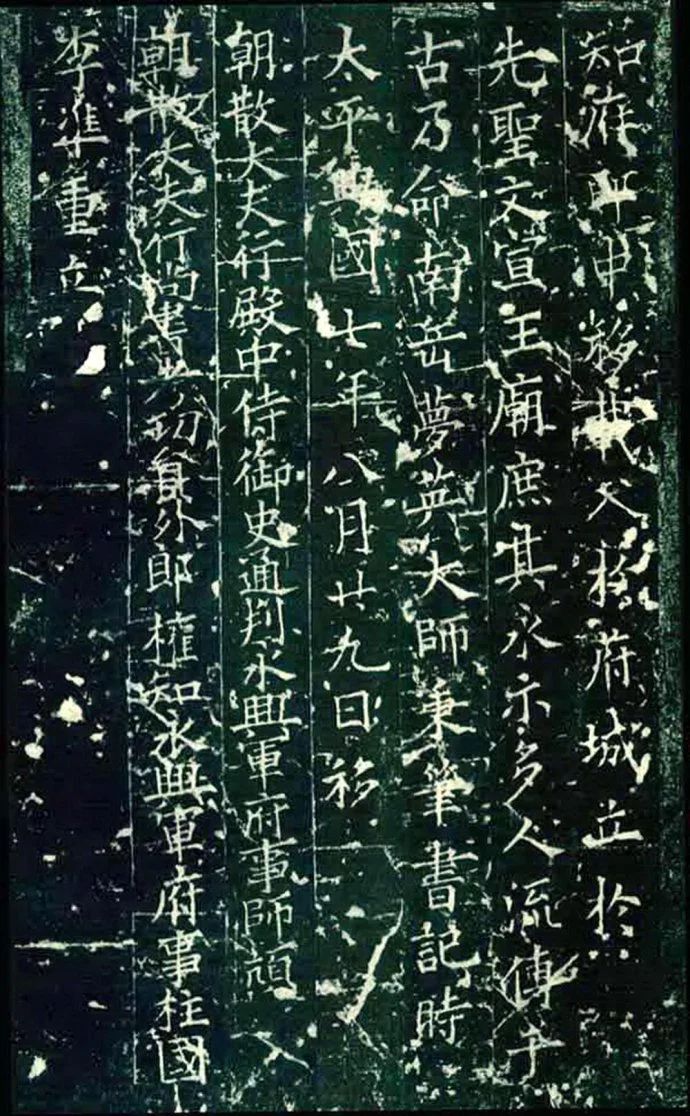 知府即申移其文於府城立於
先聖文宣王廟庶其永示多人流傳千
古乃命南岳夢英大師秉筆書記時
太平興國七年八月廿九日移
朝散大夫行殿中侍御史通判永興軍府事師頏
朝散大夫行尚書員外郎權知永興軍府事柱國
李準重立